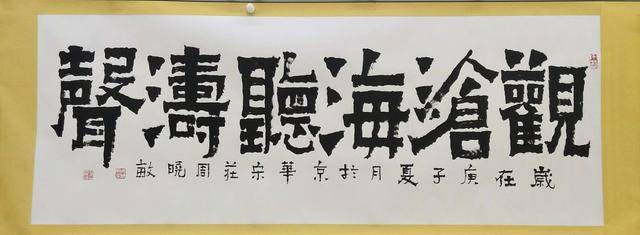 觀滄海聽濤聲
歲在庚子夏月於京華宗莊周曉敏